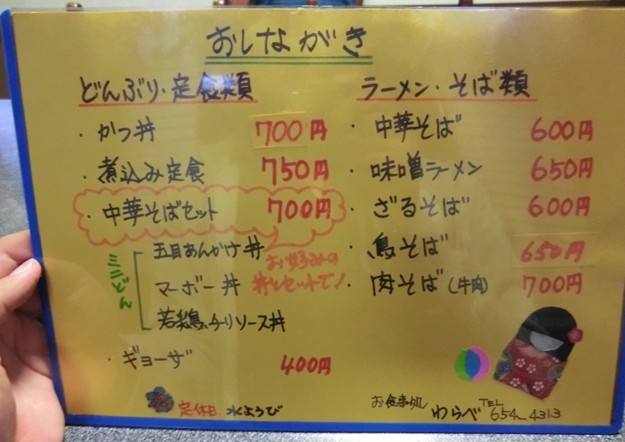 おしながき
どんぶり・定食類
・かつ丼 700円
・煮込み定食 750円
・中華そばセット 700円
ミニどん
五目あんかけ丼
マーボー丼
若鶏チリソース丼
お好みの
丼とセットで!
・ギョーザ 400円
定休日 水ようび
ラーメン・そば類
・中華そば 600円
・味噌ラーメン 650円
・ざるそば 600円
・鳥そば 650円
・肉そば(牛肉) 700円
お食事処 わらべ TEL 654-4313